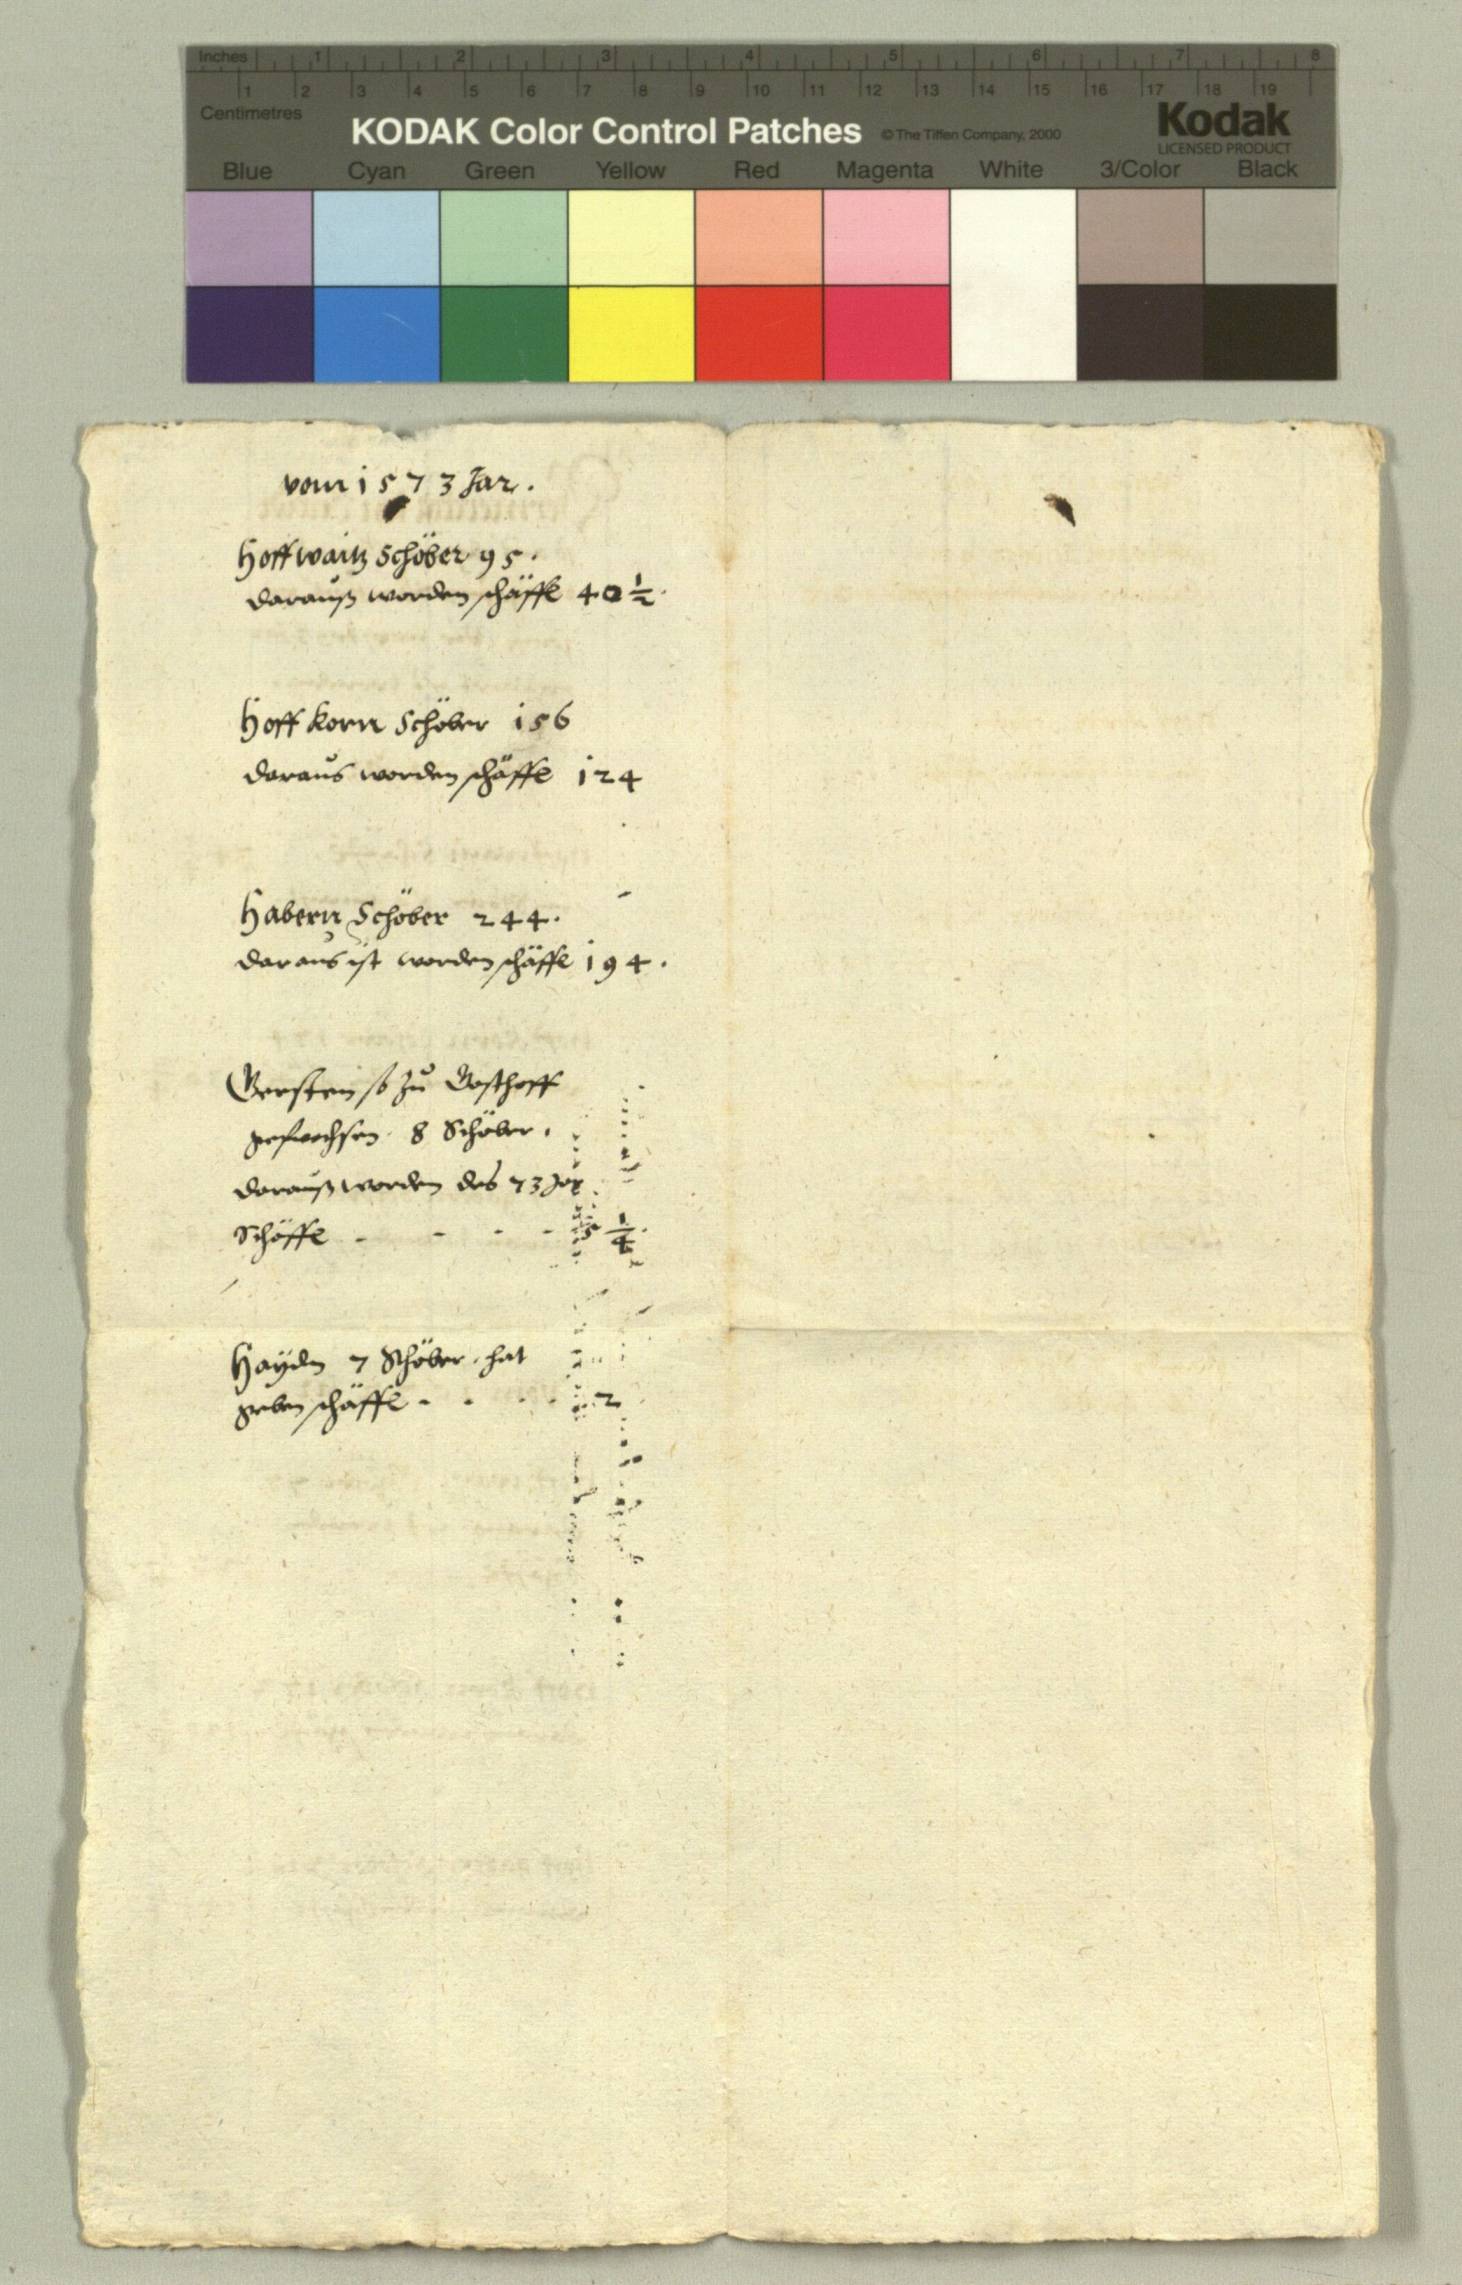 Inches 1 2 3 4 5 6 7 8
1 2 3 4 5 6 7 8 9 10 11 12 13 14 15 16 17 18 19
Centimetres
KODAK Color Control Patches © The Tiffen Company, 2000 Kodak
LICENSED PRODUCT
Blue Cyan Green Yellow Red Magenta White 3/Color Black
vom 1573 Jar.
Hoffwaitz Schöber 95.
darauß worden schäffl 40 1/2.
Hoff korn Schöber 156
daraus worden schäffl 124
Habern Schöber 244.
daraus ist worden schäffl 194.
Gersten so zu
8 Schöber.
darauß worden des 73 Jar
Schäffl - - - - 5 1/4.
Hayden 7 Schöber hat
geben schäffl - - - - 2